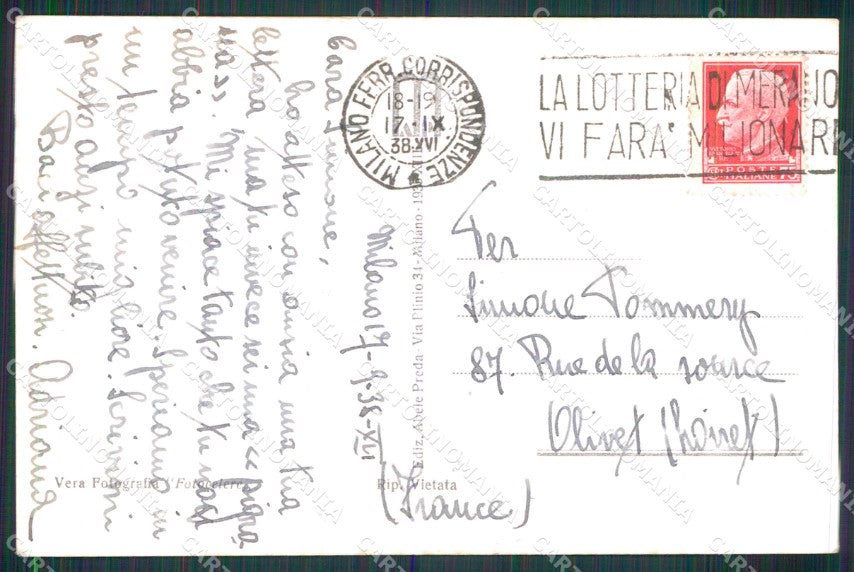 MILANO FERR. CORRISPONDENZE
18-19
17-IX
38.XVI
LA LOTTERIA DI MERANO
VI FARA' MILIONARI
POSTE
ITALIANE 75
Milano 17-9-38-XVI
Cara Simone,
ho atteso con ansia una tua
lettera ma tu invece sei una "pigro
na". Mi spiace tanto che tu non
abbia potuto venire. Speriamo in
un tempo migliore. Scrivimi
presto anzi subito.
Baci affettuosi. Adriana
Per
Simone Pommery
87. Rue de la source
Olivet (Loiret)
(France)
Vera Fotografia "Fotocelere"
Rip. Vietata
Ediz. Adele Preda - Via Plinio 31 - Milano - 193
CARTOLINOMANIA